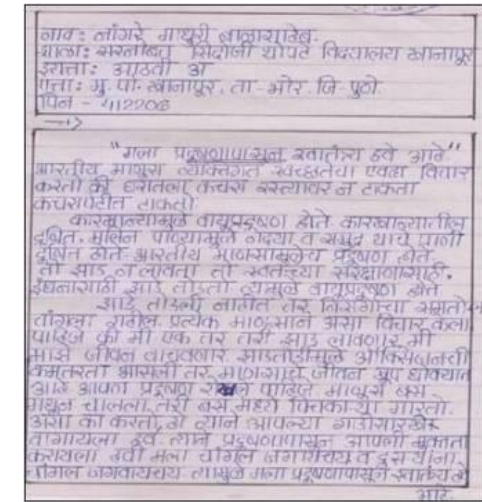 नाव : लांगरे माधुरी बाळासाहेब.
शाळा : सरनोबत सिदोजी थोपटे विद्यालय खानापूर
इयत्ता : आठवी अ
पत्ता : मु. पो. खानापूर. ता - भोर. जि - पुणे.
पिन - 412206
"मला प्रदूषणापासून स्वातंत्र्य हवे आहे"
भारतीय माणूस व्यक्तिगत स्वच्छतेचा एवढा विचार
करतो की घरातला कचरा रस्त्यावर न टाकता
कचरापेटीत टाकतो.
कारखान्यामुळे वायूप्रदूषण होते. कारखान्यातील
दूषित, मलिन पाण्यामुळे नद्या व समुद्र याचे पाणी
दूषित होते. भारतीय माणसामुळेच प्रदूषण होते.
तो झाड न लावता तो स्वतःच्या संरक्षणासाठी,
इंधनासाठी झाडे तोडतो त्यामुळे वायूप्रदूषण होते
झाडे तोडली नाहीत तर निसर्गाचा समतोल
चांगला राहील. प्रत्येक माणसाने असा विचार केला
पाहिजे की मी एक तर तरी झाड लावणार. मी
माझे जीवन वाचवणार. झाडतोडीमुळे ऑक्सिजनची
कमतरता भासली तर माणसाचे जीवन खूप धोक्यात
आहे. आपण प्रदूषण पाहिजे. माणूस बस
मधून चालला. तरी बस मध्ये पिचकाऱ्या मारतो.
असा का करतो, हे त्याने आपल्या गाडीसारखे
वागायला हवे. त्याने प्रदूषणापासून आपली मुक्तता
करायला हवी मला चांगले जगायचय व दुसऱ्यांना
चांगले जगवायचय. त्यामुळे मला प्रदूषणापासून स्वातंत्र्य हवे
आहे.